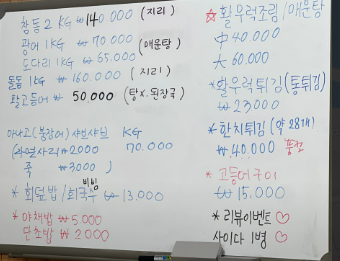 참돔2 KG ₩140.000 (지리)
광어 1KG ₩70.000 (매운탕)
도다리 1KG ₩65.000
돌돔 1KG ₩160.000 (지리)
활고등어 ₩50.000 (탕X.된장국)
아나고(붕장어)샤브샤브 KG
70.000
(라면사리₩2000
죽 ₩3000 )
* 회덮밥/회국수 ₩13.000
비빔
* 야채밥 ₩5.000
단초밥 ₩2000
☆활우럭조림/매운탕
中40.000
大60.000
*활우럭튀김(통튀김)
₩23000
*한치튀김(약28개)
₩40.000 품절
*고등어구이
₩15.000
*리뷰이벤트♡
사이다1병♡